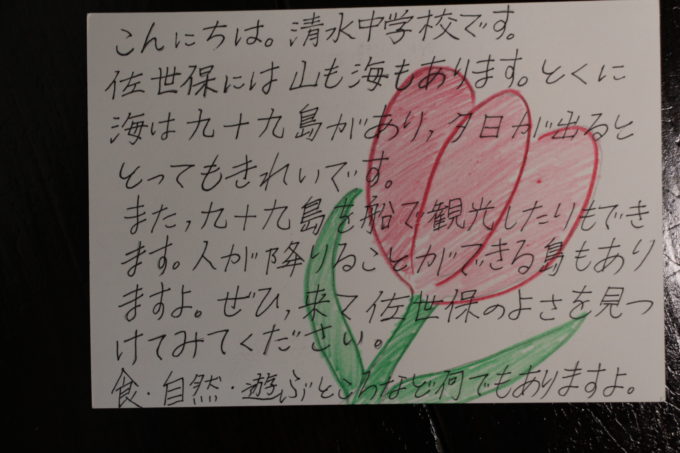 こんにちは。清水中学校です。
佐世保には山も海もあります。とくに
海は九十九島があり,夕日が出ると
とってもきれいです。
また,九十九島を船で観光したりもでき
ます。人が降りることができる島もあり
ますよ。ぜひ,来て佐世保のよさを見つ
けてみてください。
食・自然・遊ぶところなど何でもありますよ。